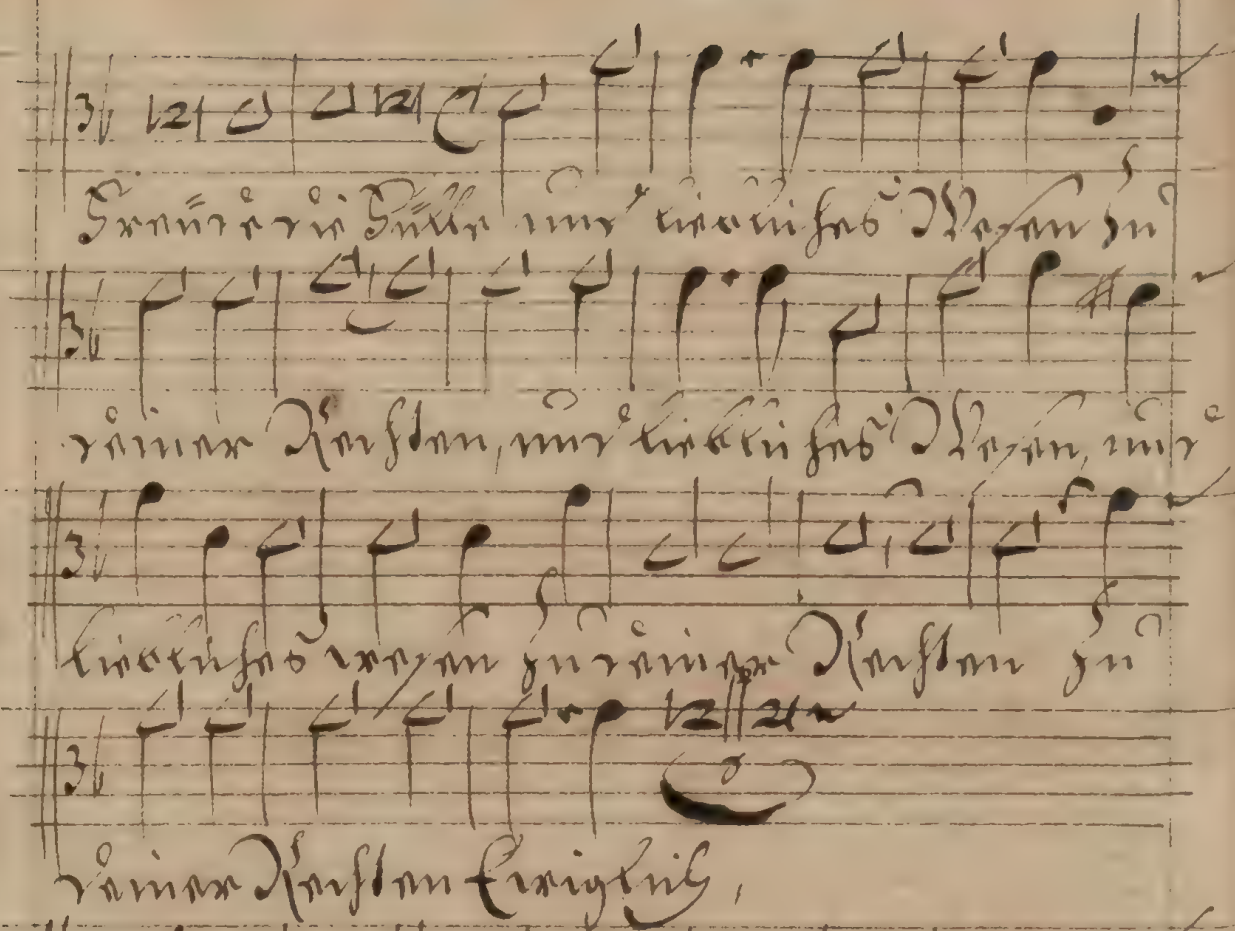 Freüde die Fülle und liebliches Wesen zu
deiner Rechten, und liebliches Wesen, und
liebliches wesen zu deiner Rechten zu
deiner Rechten Ewiglich,